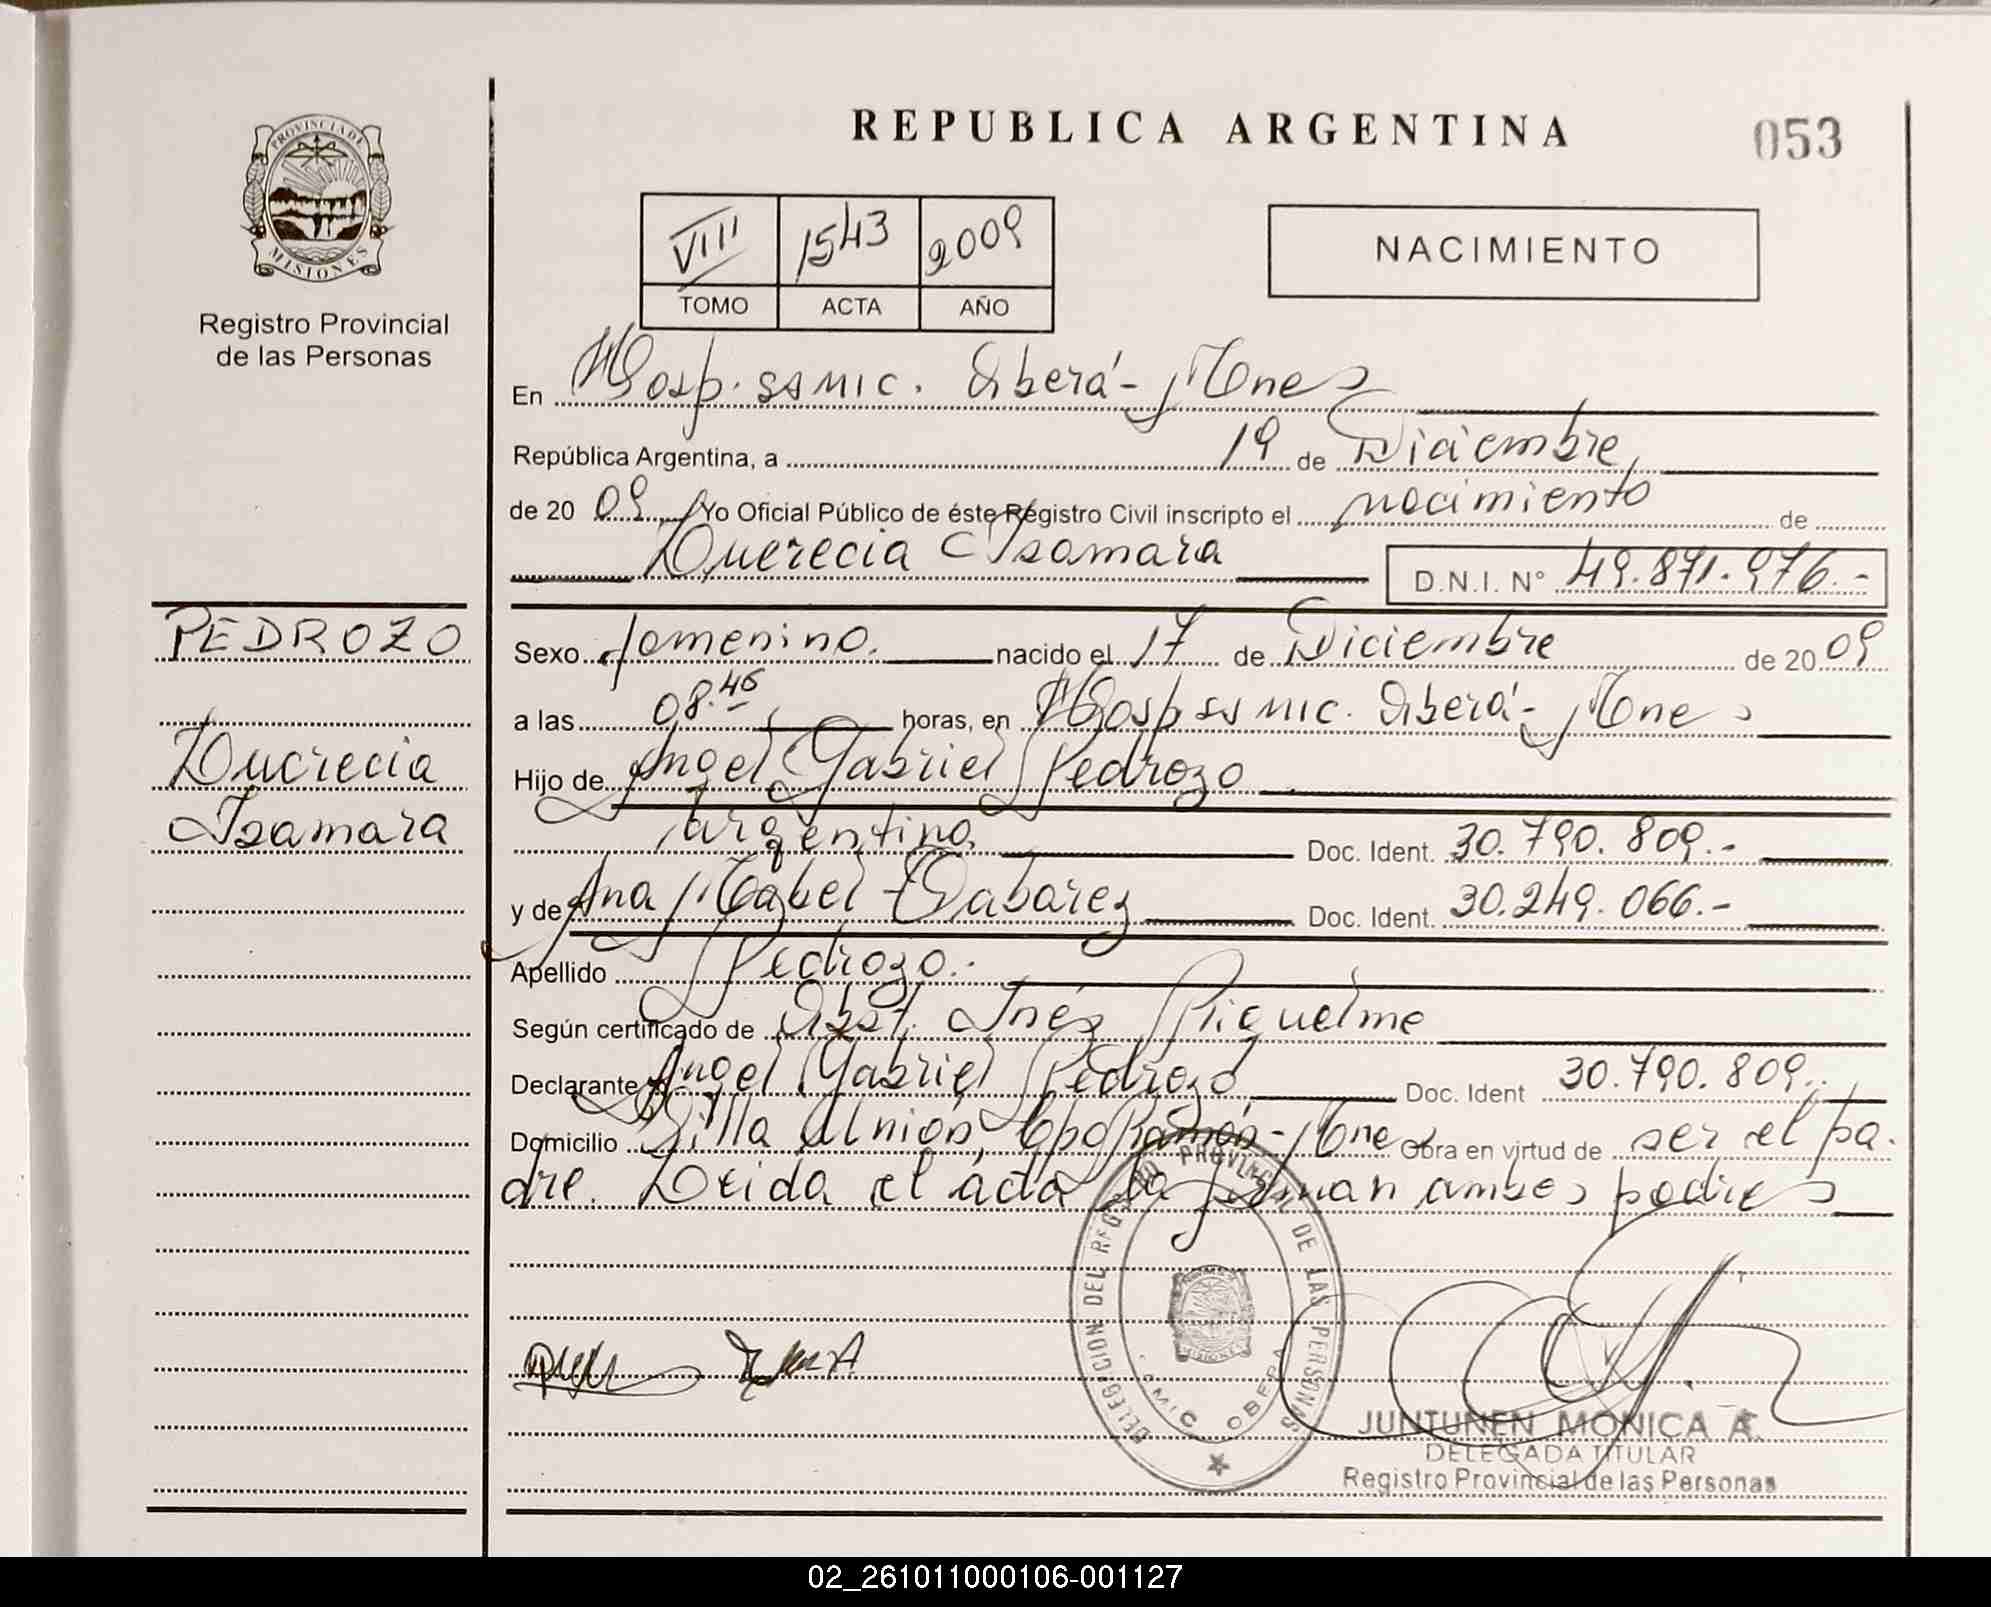 REPUBLICA ARGENTINA
053
PROVINCIA DE MISIONES
Registro Provincial
de las Personas
VIII 1543 2009
TOMO ACTA AÑO
NACIMIENTO
En Hosp. SAMIC. Oberá - Mnes
República Argentina, a 19 de Diciembre,
de 20 09 Yo Oficial Público de éste Registro Civil inscripto el nacimiento de
Lucrecia Itamara
D.N.I. N° 49.871.976.-
PEDROZO
Lucrecia
Itamara
Sexo femenino. nacido el 17 de Diciembre de 20 09
a las 08.46 horas, en Hosp SAMIC. Oberá - Mnes
Hijo de Angel Gabriel Pedrozo
Argentino. Doc. Ident. 30.790.809.-
y de Ana Mabel Tabarez Doc. Ident. 30.249.066.-
Apellido Pedrozo.-
Según certificado de Obst. Inéz Piquelme
Declarante Angel Gabriel Pedrozo Doc. Ident 30.790.809.-
Domicilio Villa Unión, Cpo Ramón - Mnes Obra en virtud de ser el pa-
dre. Leida el acta la firman ambos padres
DELEGACION DEL REGISTRO PROVINCIAL DE LAS PERSONAS
SAMIC OBERA
JUNTUNEN MONICA A.
DELEGADA TITULAR
Registro Provincial de las Personas
02_261011000106-001127